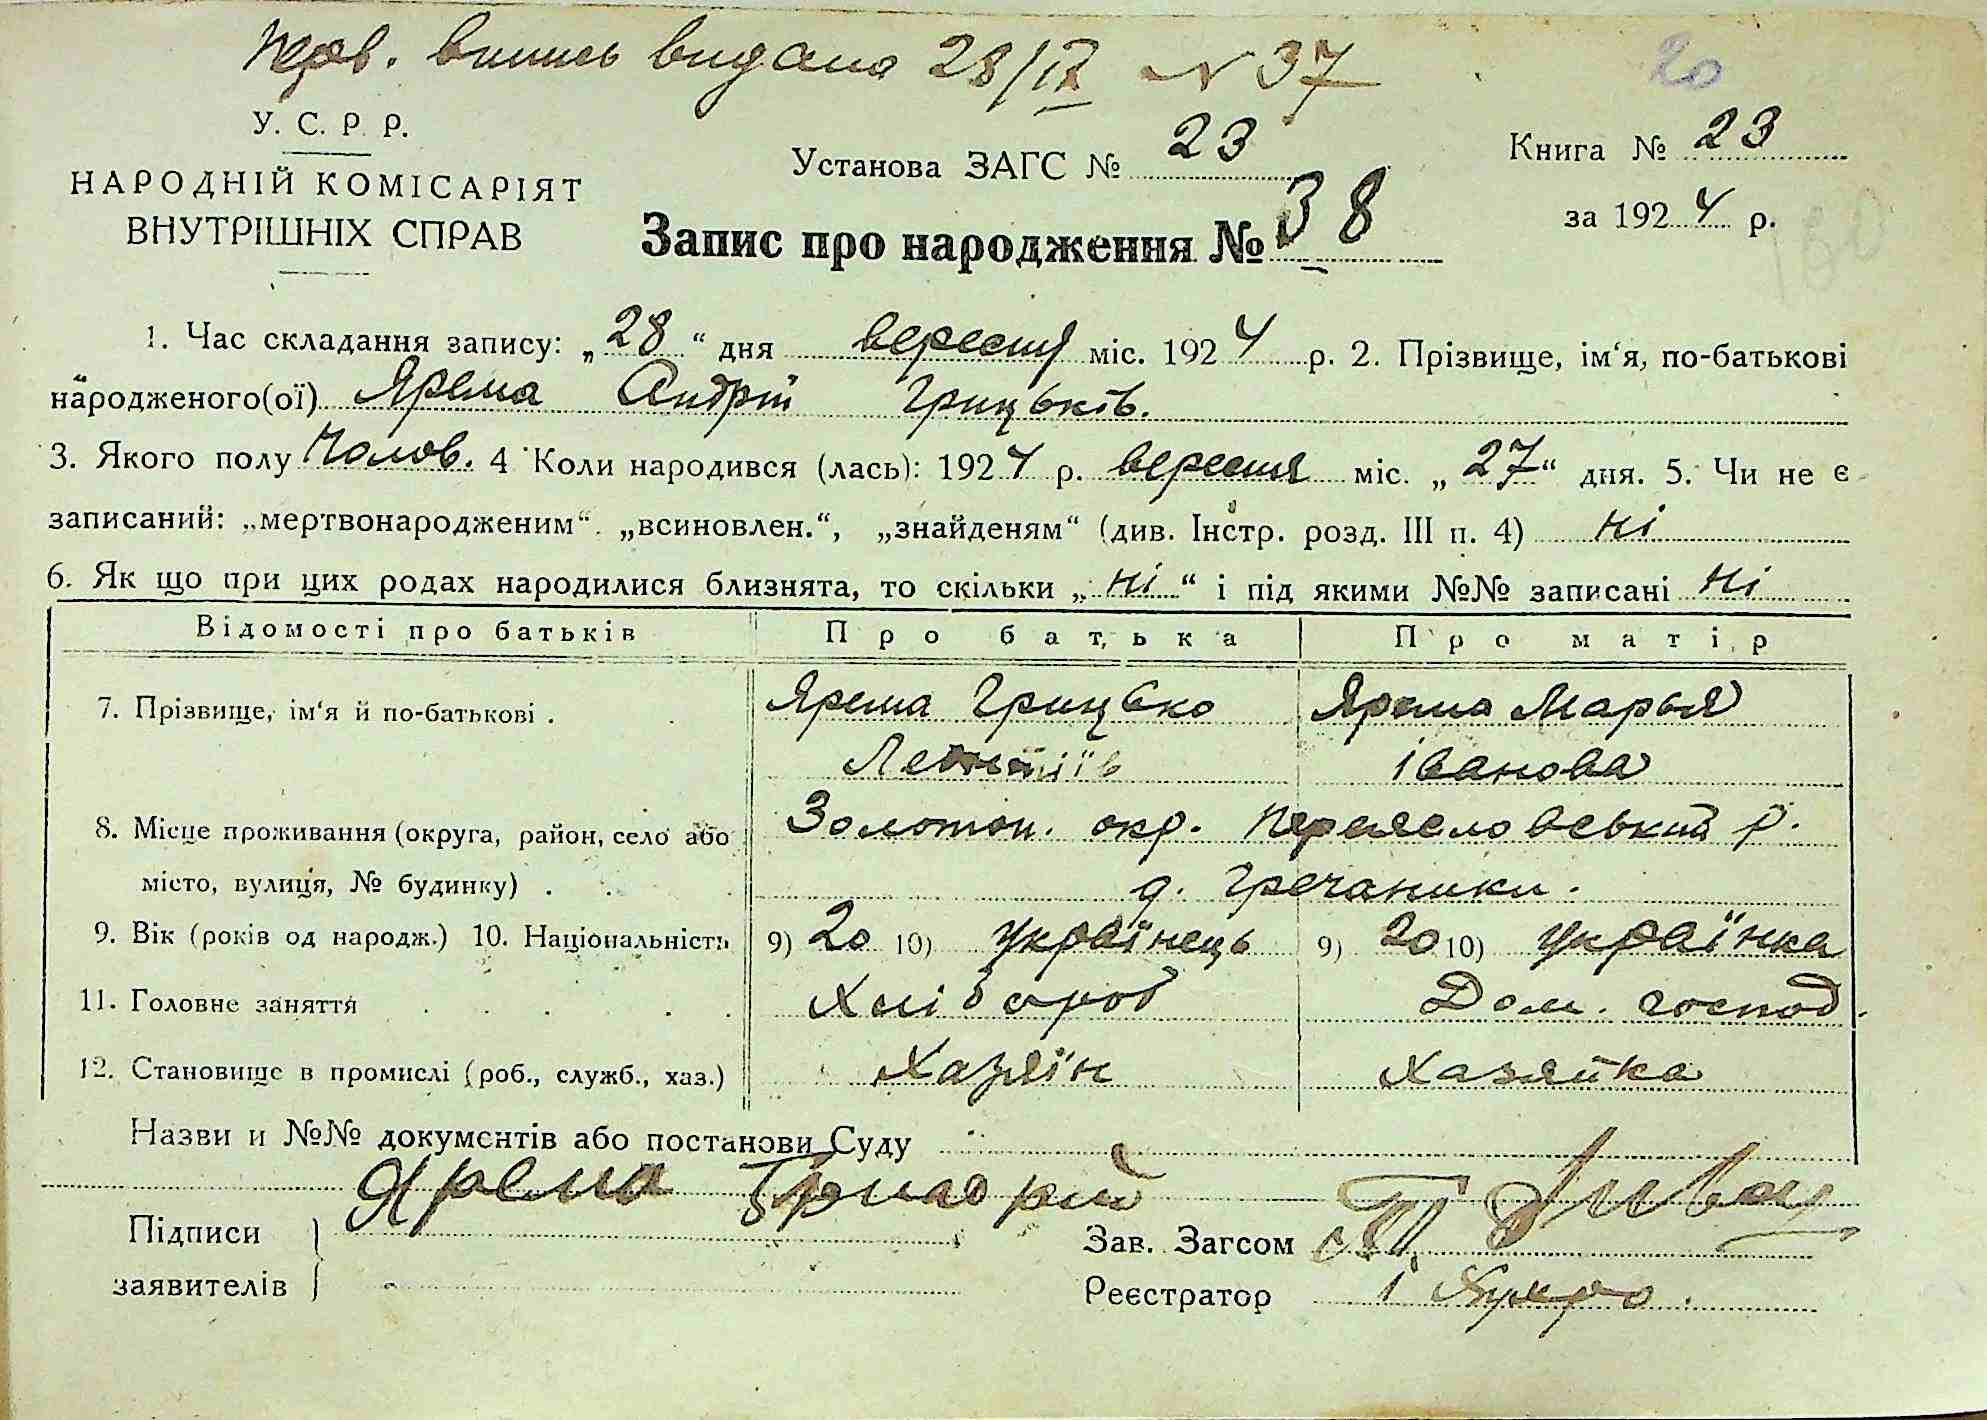 Перв. випись видана 28/IX N 37
20
У. С. Р. Р.
НАРОДНІЙ КОМІСАРІЯТ
ВНУТРІШНІХ СПРАВ
Установа ЗАГС № 23
Книга № 23
за 1924 р.
Запис про народження № 38
1. Час складання запису: „28“ дня вересня міс. 1924 р. 2. Прізвище, ім‘я, по-батькові
народженого(ої) Ярема Андрій Грицьків.
3. Якого полу Чолов. 4 Коли народився (лась): 1924 р. вересня міс. „27“ дня. 5. Чи не є
записаний: „мертвонародженим“. „всиновлен.“, „знайденям“ (див. Інстр. розд. III п. 4) ні
6. Як що при цих родах народилися близнята, то скільки „ні“ і під якими №№ записані ні
Відомості про батьків Про батька Про матір
7. Прізвище, ім‘я й по-батькові . Ярема Грицько Ярема Марья
Іванова
8. Місце проживання (округа, район, село або Золотон. окр. Переясловський р.
місто, вулиця, № будинку) . д. Гречаники.
9. Вік (років од народж.) 10. Національність 9) 20 10) українець 9) 20 10) українка
11. Головне заняття Хлібороб Дом. господ.
12. Становище в промислі (роб., служб., хаз.) Хазяїн Хазяйка
Назви и №№ документів або постанови Суду
Ярема Григорій
Підписи
заявителів
Зав. Загсом
Реєстратор